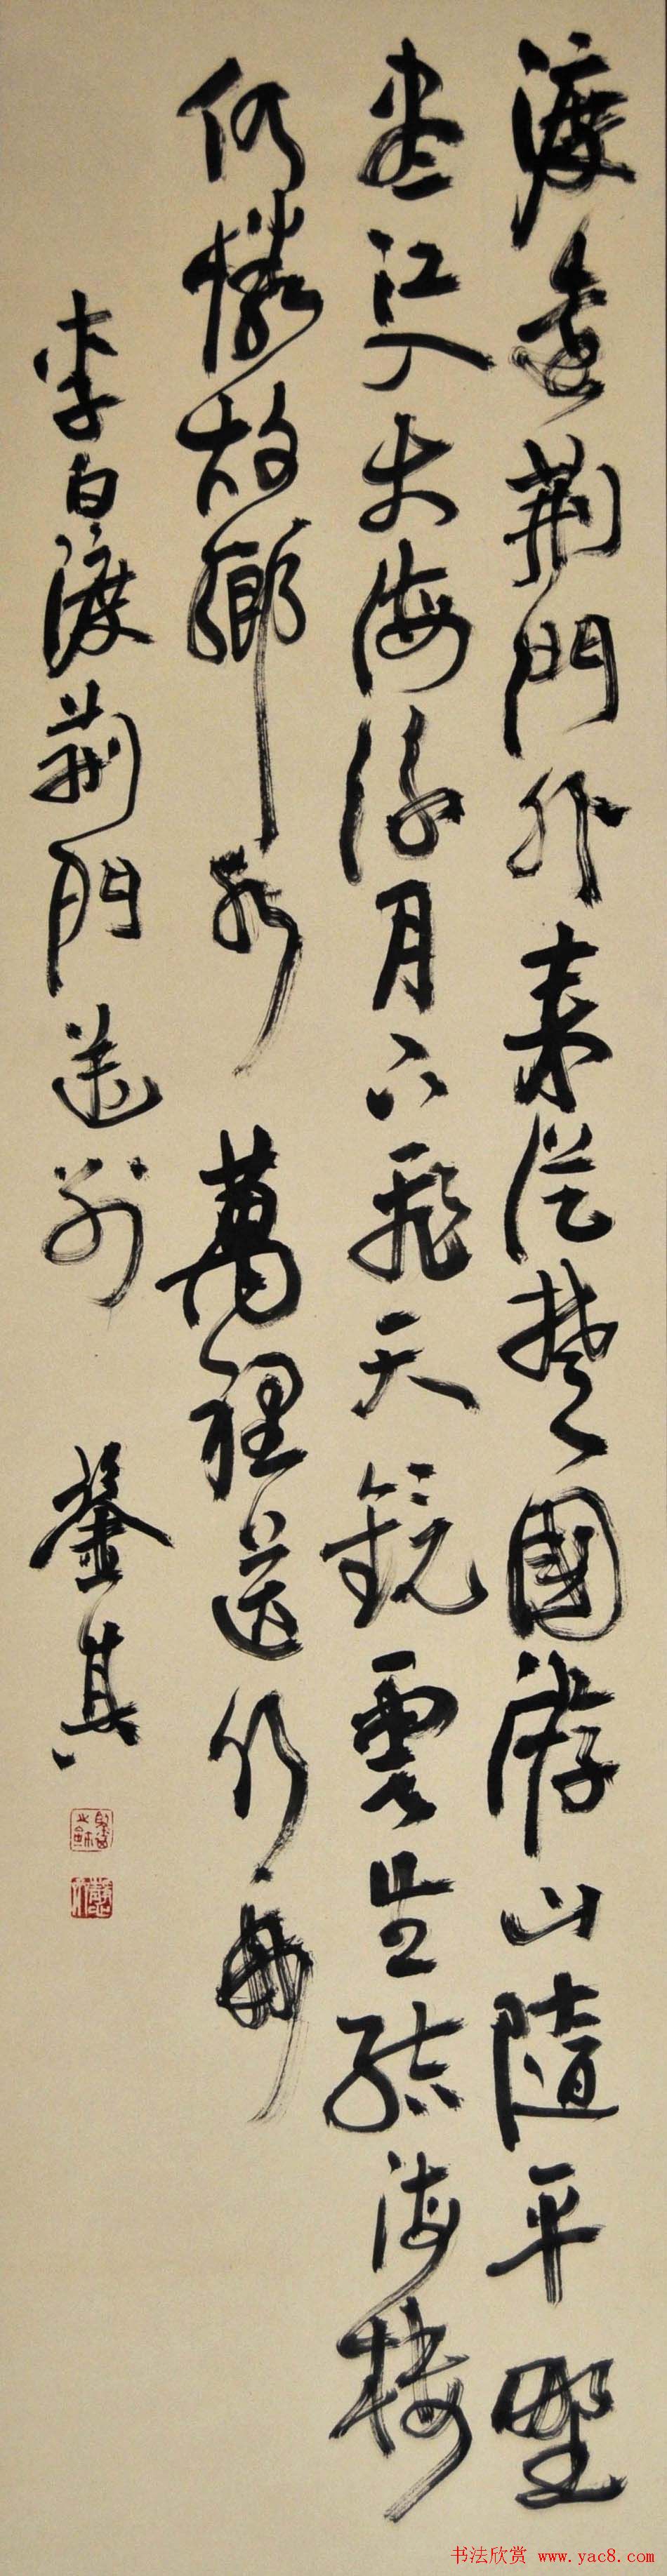 渡遠荊門外來從楚國游山隨平野
盡江入大海流月下飛天鏡雲生結海樓
仍憐故鄉水萬裡送行舟
李白渡荊門送別 其
书法欣赏 www.yac8.com